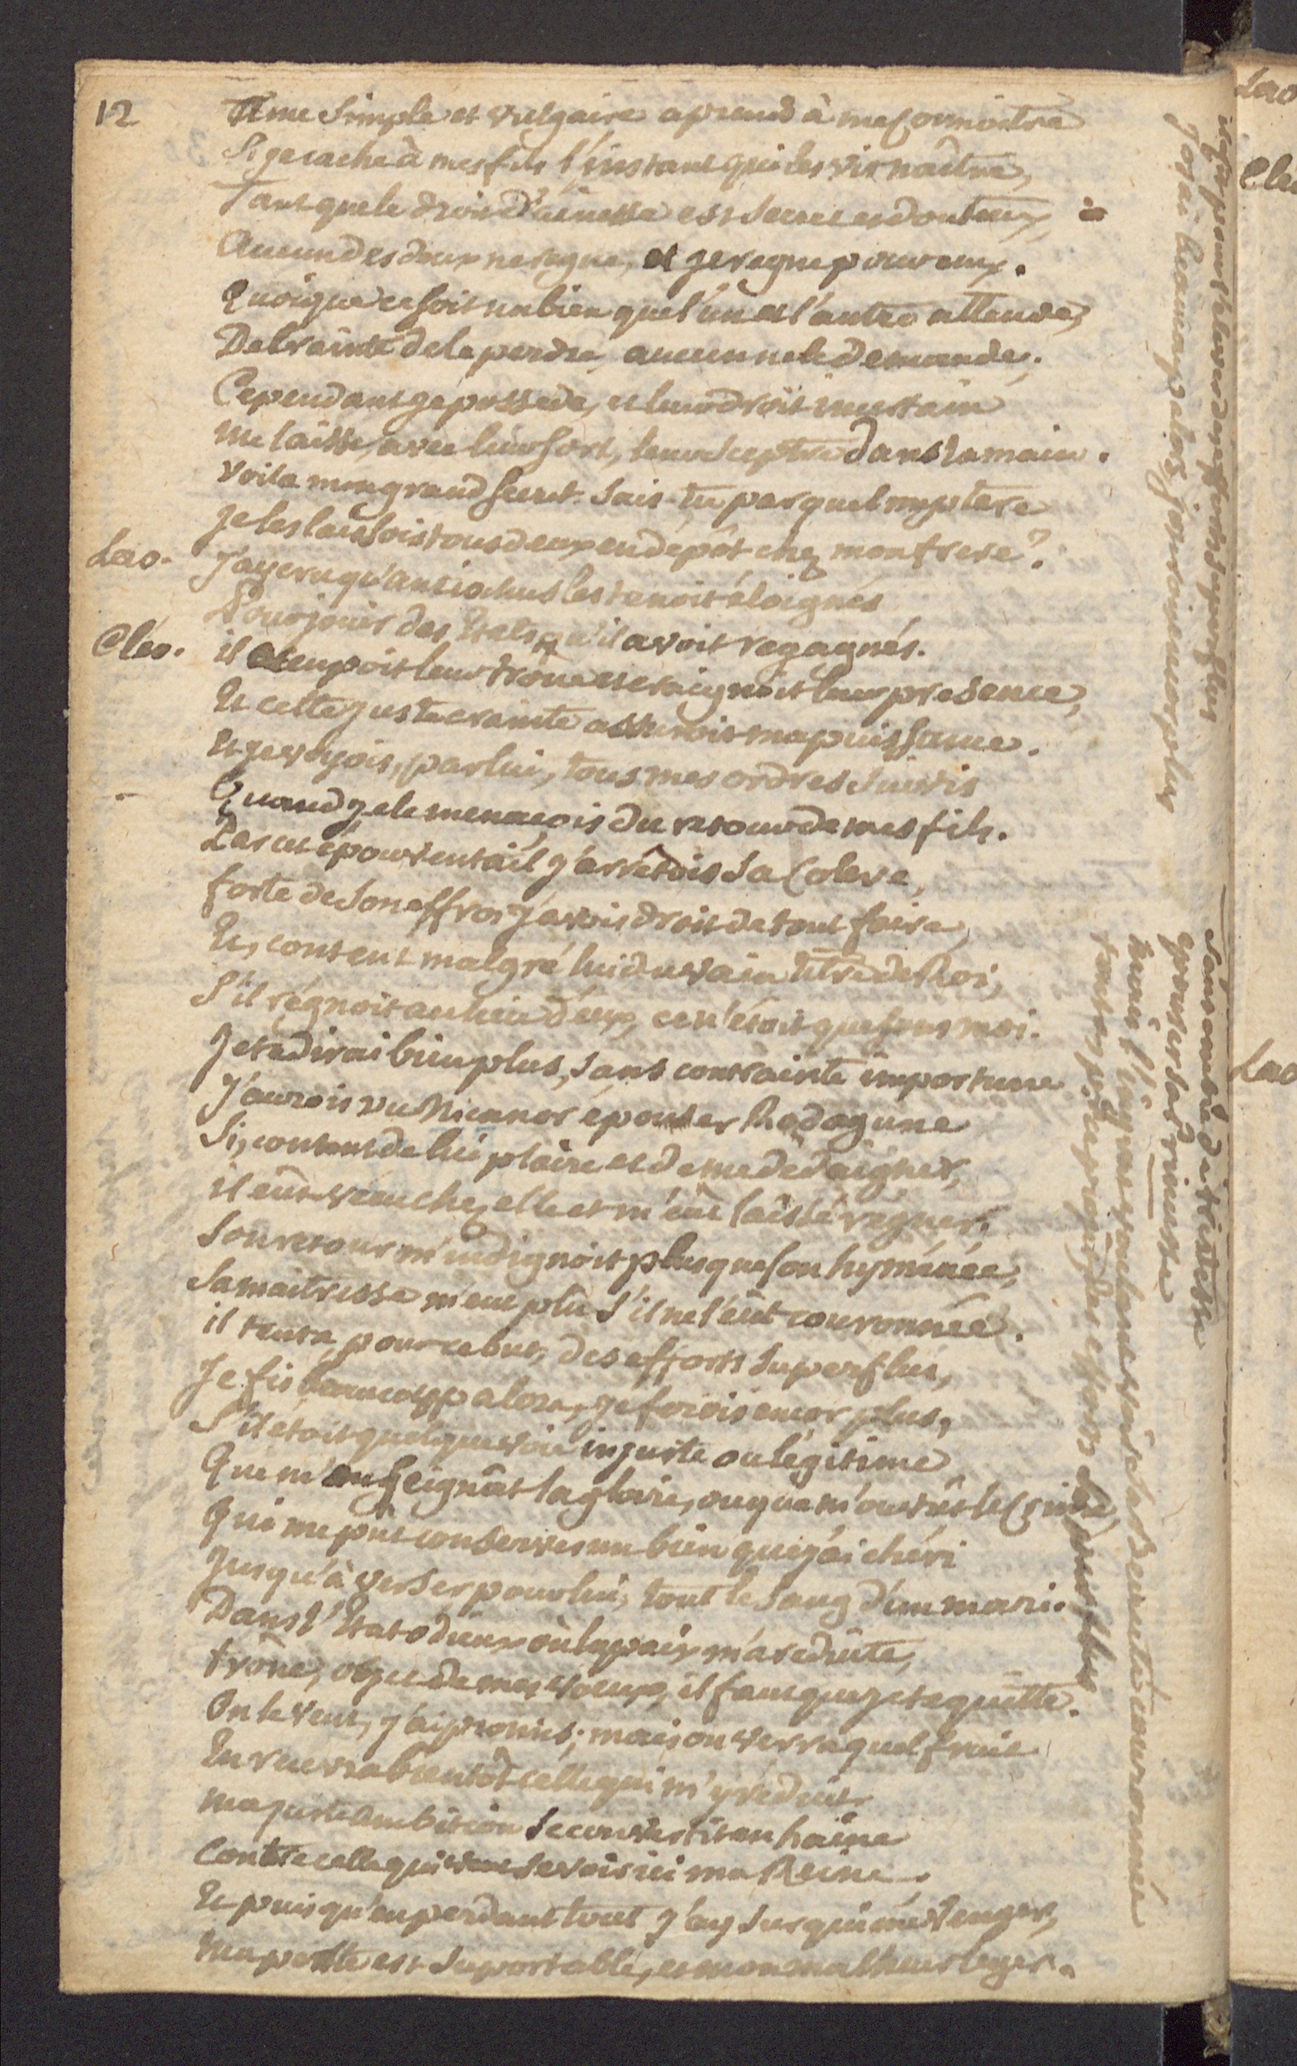 12
Ame simple et vulgaire aprends à me connoitre
Si je cache à mes fils l'instant qui les vit naître,
Tant que le droit d'ainesse est secret et douteux,
Aucun des deux ne regne, et je regne pour eux.
Quoique ce soit un bien que l'un et l'autre attende,
De crainte de le perdre, aucun ne le demande.
Cependant je possede, et leur droit incertain
me laisse, avec leur sort, leur sceptre dans la main.
voila mon grand secret. Sais-tu par quel mystere
je les laissois tous deux en depôt chez mon frere?
Lao. J'ay cru qu'antiochus les tenoit éloignés
Pour jouir des Etats qu'il avoit regagnés.
Cléo. il occupoit leur trône et craignoit leur presence,
Et cette juste crainte assuroit ma puissance.
Et je voyois, par lui, tous mes ordres suivis
Quand je le menaçois du retour de mes fils.
Par cet épouventail j'arrêtois sa colere,
forte de son effroi j'avois droit de tout faire,
Et, content malgré lui du vain titre de Roi,
S'il régnoit au lieu d'eux, ce n'étoit que sous moi.
Je te dirai bien plus, sans contrainte importune
J'aurois vu Nicanor épouser Rodogune
Si, content de lui plaire et de me dedaigner,
il eût vecu chez elle et m'eût laissé régner.
Son retour m'indignoit plus que son hyménée,
Sa maitresse m'eut plû s'il ne l'eût couronnée.
il tenta, pour ce but, des efforts superflus,
Je fis beaucoup alors, je ferois encor plus,
S'il étoit quelque voie injuste ou légitime
Que m'enseignât la gloire, ou que m'ouvrît le Crime,
Qui me pût conserver un bien que j'ai chéri
Jusqu'à verser pour lui, tout le sang d'un mari.
Dans l'Etat odieux où la paix m'a reduite,
trône, objet de mes voeux, il faut que je te quitte.
On le veut, j'ai promis; mais on verra quel fruit
En recevra bientôt celle qui m'y reduit.
ma juste ambition se convertit en haine
Contre celle qui se voit ici ma Reine.
Et puisqu'en perdant tout j'ay sur qui me venger,
ma perte est suportable, et mon malheur leger.
j'osai beaucoup alors, j'oserois encor plus
épouser sa
couronnée
des efforts superflus
Lao
Cleo
Lao